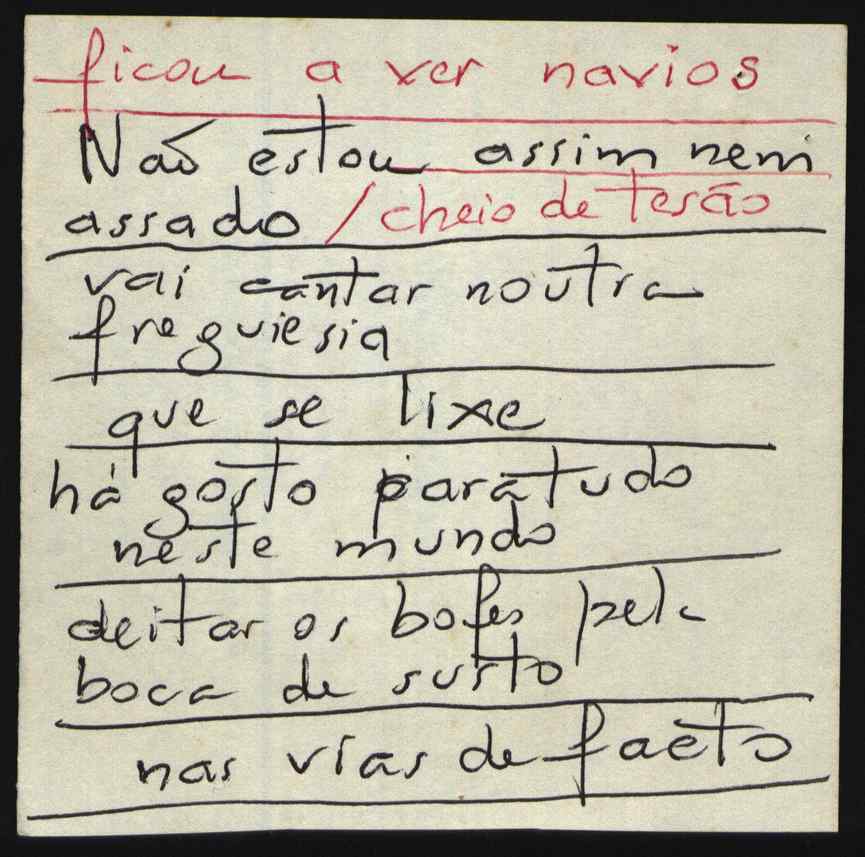 ficou a ver navios
Não estou assim nem
assado / cheio de tesão
vai cantar noutra
freguiesia
que se lixe
há gosto para tudo
neste mundo
deitar os bofes pela
boca de susto
nas vias de facto